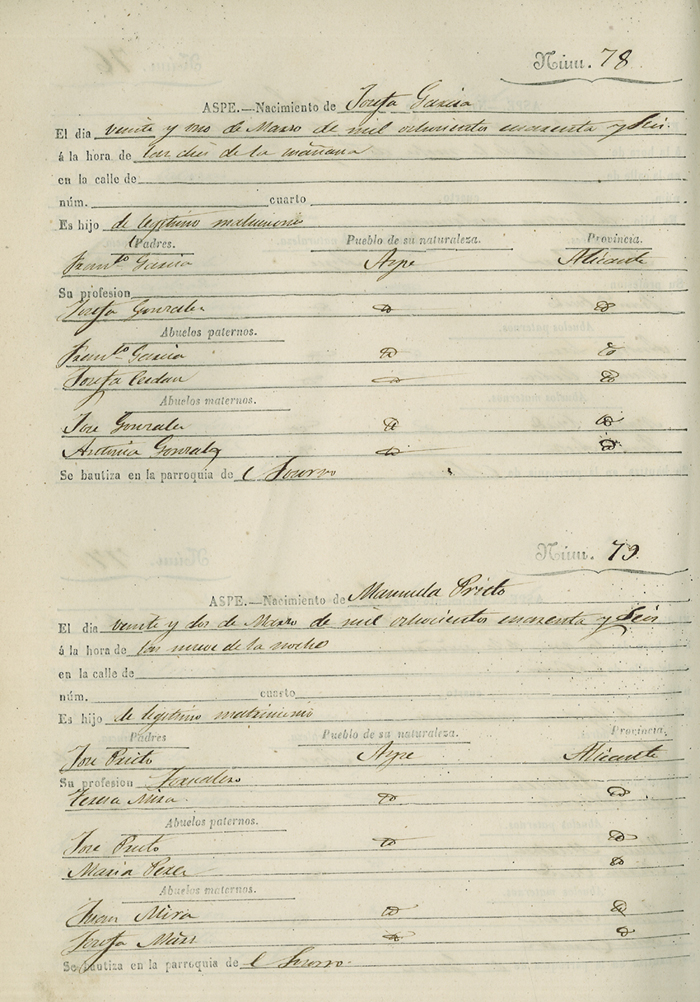 Núm. 78
ASPE.—Nacimiento de Josefa Garcia
El dia veinte y uno de Marzo de mil ochocientos cuarenta y Seis.
á la hora de las diez de la mañana
en la calle de
núm. cuarto
Es hijo de legitimo matrimonio
Padres. Pueblo de su naturaleza. Provincia.
Franco. Garcia Aspe Alicante
Su profesion
Josefa Gonzalez
Abuelos paternos.
Franco. Garcia
Josefa Cerdan
Abuelos maternos.
Jose Gonzalez
Antonia Gonzalez
Se bautiza en la parroquia de
Núm. 79
ASPE.—Nacimiento de Manuela Prieto
El dia veinte y dos de Marzo de mil ochocientos cuarenta y Seis
á la hora de las nueve de la noche
en la calle de
núm. cuarto
Es hijo de legitimo matrimonio
Padres Pueblo de su naturaleza. Provincia.
Jose Prieto Aspe Alicante
Su profesion Jornalero
Teresa Mira
Abuelos paternos.
Jose Prieto
Maria Perez
Abuelos maternos.
Juan Mira
Josefa
Se bautiza en la parroquia de